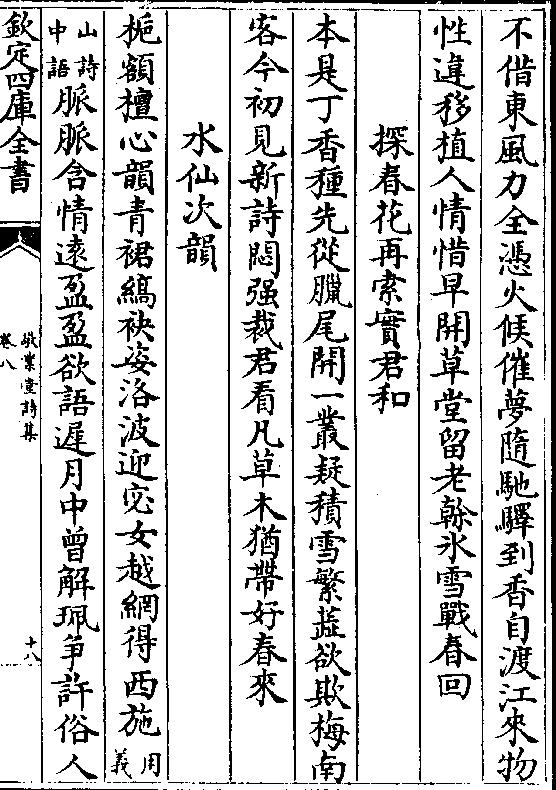 不借東風力全憑火候催夢隨馳驛到香自渡江來物
性違移植人情惜早開草堂留老榦氷雪戰春回
探春花再索實君和
本是丁香種先從臘尾開一叢疑積雪繁蘂欲欺梅南
客今初見新詩悶强裁君看凡草木猶帶好春來
水仙次韻
梔額檀心韻青裙縞袂姿洛波迎宓女越網得西施用義
山詩中語脈脈含情遠盈盈欲語遲月中曾解珮爭許俗人
欽定四庫全書
敬業堂詩集
卷八
十八